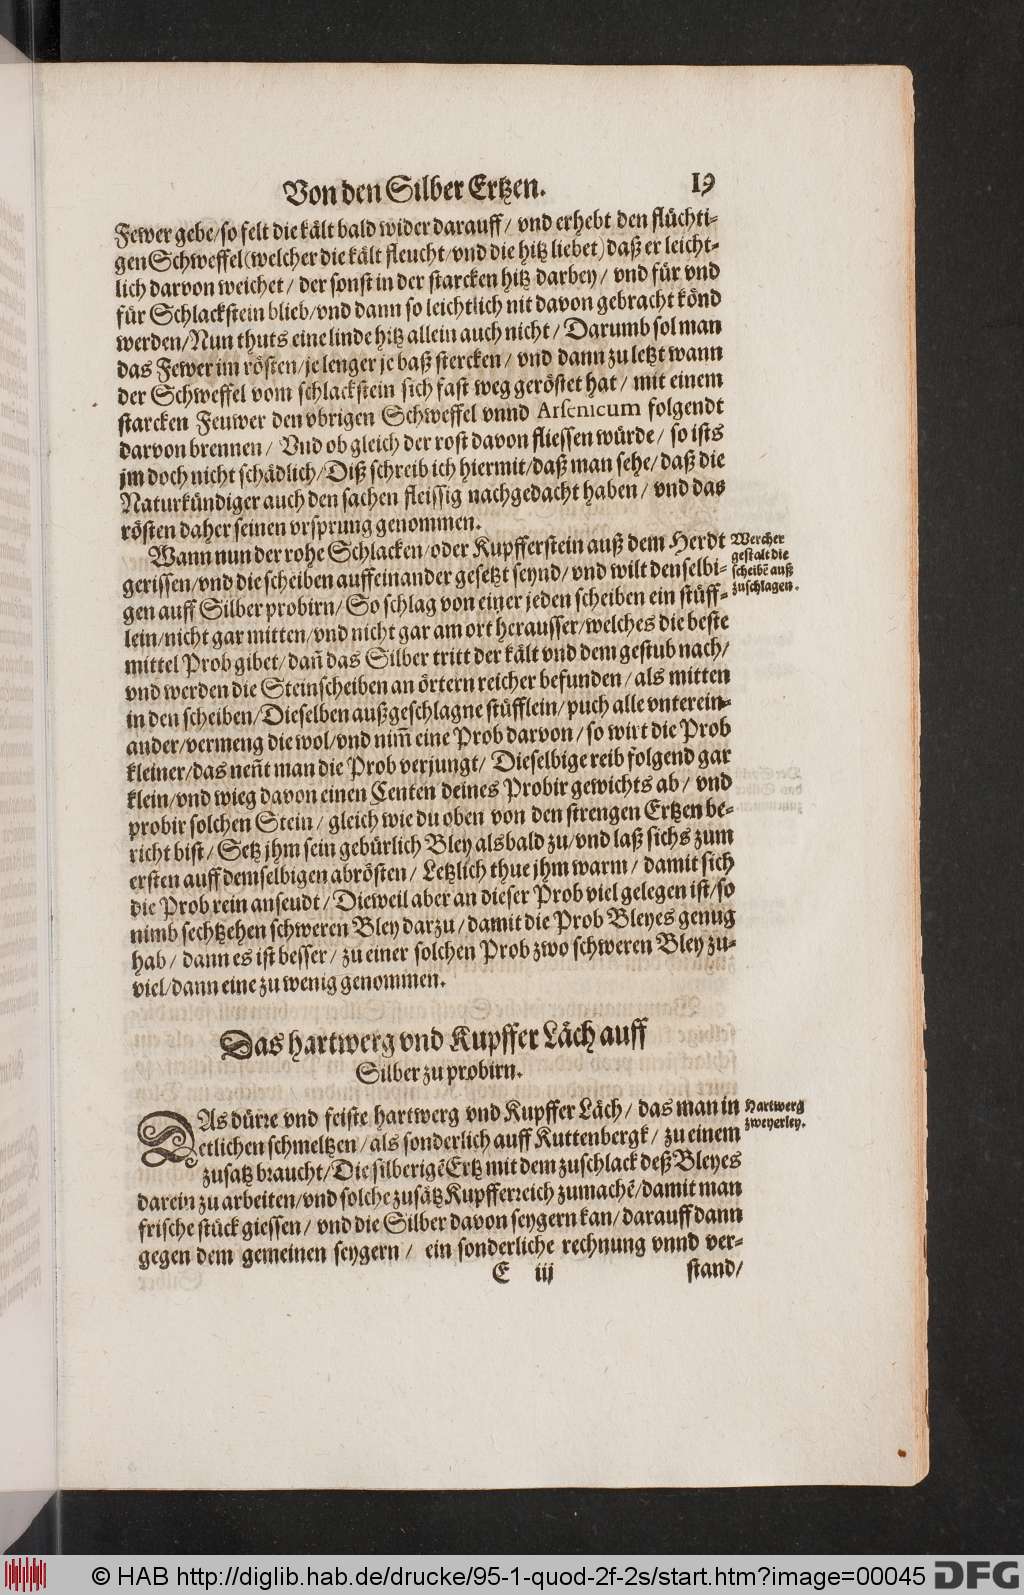 Von den Silber Ertzen. 19
Fewer gebe/so felt die kålt bald wider darauff/ vnd erhebt den flůchti-
gen Schweffel(welcher die kålt fleucht/vnd die hitz liebet)daß er leicht-
lich darvon weichet/ der sonst in der starcken hitz darbey/ vnd fůr vnd
fůr Schlackstein blieb/vnd dann so leichtlich nit davon gebracht kȯnd
werden/Nun thuts eine linde hitz allein auch nicht/ Darumb sol man
das Fewer im rȯsten/je lenger je baß stercken/ vnd dann zu letzt wann
der Schweffel vom schlackstein sich fast weg gerȯstet hat/ mit einem
starcken Feuwer den vbrigen Schweffel vnnd Arsenicum folgendt
darvon brennen/ Vnd ob gleich der rost davon fliessen wůrde/ so ists
jm doch nicht schådlich/Diß schreib ich hiermit/daß man sehe/daß die
Naturkůndiger auch den sachen fleissig nachgedacht haben/ vnd das
rȯsten daher seinen vrsprung genommen.
Wann nun der rohe Schlacken/oder Kupfferstein auß dem Herdt
gerissen/vnd die scheiben auffeinander gesetzt seynd/ vnd wilt denselbi-
gen auff Silber probirn/ So schlag von einer jeden scheiben ein stůff-
lein/nicht gar mitten/vnd nicht gar am ort herausser/welches die beste
mittel Prob gibet/dañ das Silber tritt der kålt vnd dem gestub nach/
vnd werden die Steinscheiben an ȯrtern reicher befunden/ als mitten
in den scheiben/Dieselben außgeschlagne stůfflein/puch alle vnterein-
ander/vermeng die wol/vnd nim̃ eine Prob darvon/ so wirt die Prob
kleiner/das neñt man die Prob verjungt/ Dieselbige reib folgend gar
klein/vnd wieg davon einen Centen deines Probir gewichts ab/ vnd
probir solchen Stein/ gleich wie du oben von den strengen Ertzen be-
richt bist/ Setz jhm sein gebůrlich Bley alsbald zu/vnd laß sichs zum
ersten auff demselbigen abrȯsten/ Letzlich thue jhm warm/ damit sich
die Prob rein anseudt/ Dieweil aber an dieser Prob viel gelegen ist/so
nimb sechtzehen schweren Bley darzu/damit die Prob Bleyes genug
hab/ dann es ist besser/ zu einer solchen Prob zwo schweren Bley zu-
viel/dann eine zu wenig genommen.
Wercher
gestalt die
scheibē auß
zuschlagen.
Das hartwerg vnd Kupffer Låch auff
Silber zu probirn.
DAs důrre vnd feiste hartwerg vnd Kupffer Låch/ das man in
etlichen schmeltzen/als sonderlich auff Kuttenbergk/ zu einem
zusatz braucht/Die silberigē Ertz mit dem zuschlack deß Bleyes
darein zu arbeiten/vnd solche zusåtz Kupfferreich zumachē/damit man
frische stůck giessen/ vnd die Silber davon seygern kan/darauff dann
gegen dem gemeinen seygern/ ein sonderliche rechnung vnnd ver-
Hartwerg
zweyerley.
E iij stand/
© HAB http://diglib.hab.de/drucke/95-1-quod-2f-2s/start.htm?image=00045 DFG